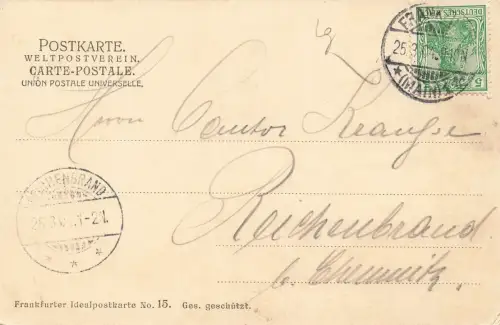 POSTKARTE.
WELTPOSTVEREIN.
CARTE-POSTALE.
UNION POSTALE UNIVERSELLE.
DEUTSCHES
5
(MAIN)
Herrn Cantor Krause
Reichenbrand
b. Chemnitz.
Frankfurter Idealpostkarte No. 15. Ges. geschützt.